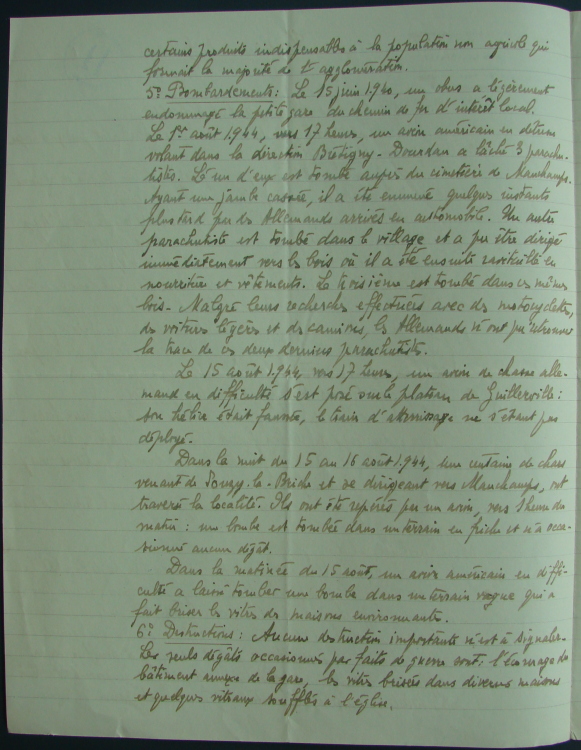 certains produits indispensables à la population non agricole qui
formait la majorité de l'agglomération.
5° Bombardements : Le 15 juin 1.940, un obus a légèrement
endommagé la petite gare du chemin de fer d'intérêt local.
Le 1er août 1.944, vers 17 heures, un avion américain en détresse
volant dans la direction Brétigny - Dourdan a lâché 3 parachu-
tistes. L'un d'eux est tombé auprès du cimetière de Mauchamps.
Ayant une jambe cassée, il a été emmené quelques instants
plus tard par des Allemands arrivés en automobile. Un autre
parachutiste est tombé dans le village et a pu être dirigé
immédiatement vers les bois où il a été ensuite ravitaillé en
nourriture et vêtements. Le troisième est tombé dans ces mêmes
bois. Malgré leurs recherches effectuées avec des motocyclettes,
des voitures légères et des camions, les Allemands n'ont pu retrouver
la trace de ces deux derniers parachutistes.
Le 15 août 1.944 vers 17 heures, un avion de chasse alle-
mand en difficulté s'est posé sur le plateau de Guillerville :
son hélice était faussée, le train d'atterrissage ne s'étant pas
déployé.
Dans la nuit du 15 au 16 août 1.944, une centaine de chars
venant de Souzy-la-Briche et se dirigeant vers Mauchamps, ont
traversé la localité. Ils ont été repérés par un avion, vers 1 heure du
matin : une bombe est tombée dans un terrain en friche et n'a occa-
sionné aucun dégât.
Dans la matinée du 15 août, un avion américain en diffi-
culté a laissé tomber une bombe dans un terrain vague qui a
fait briser les vitres des maisons environnantes.
6° Destructions : Aucune destruction importante n'est à signaler.
Les seuls dégâts occasionnés par faits de guerre sont : du
bâtiment annexe de la gare, les vitres brisées dans diverses maisons
et quelques vitraux soufflés à l'église.